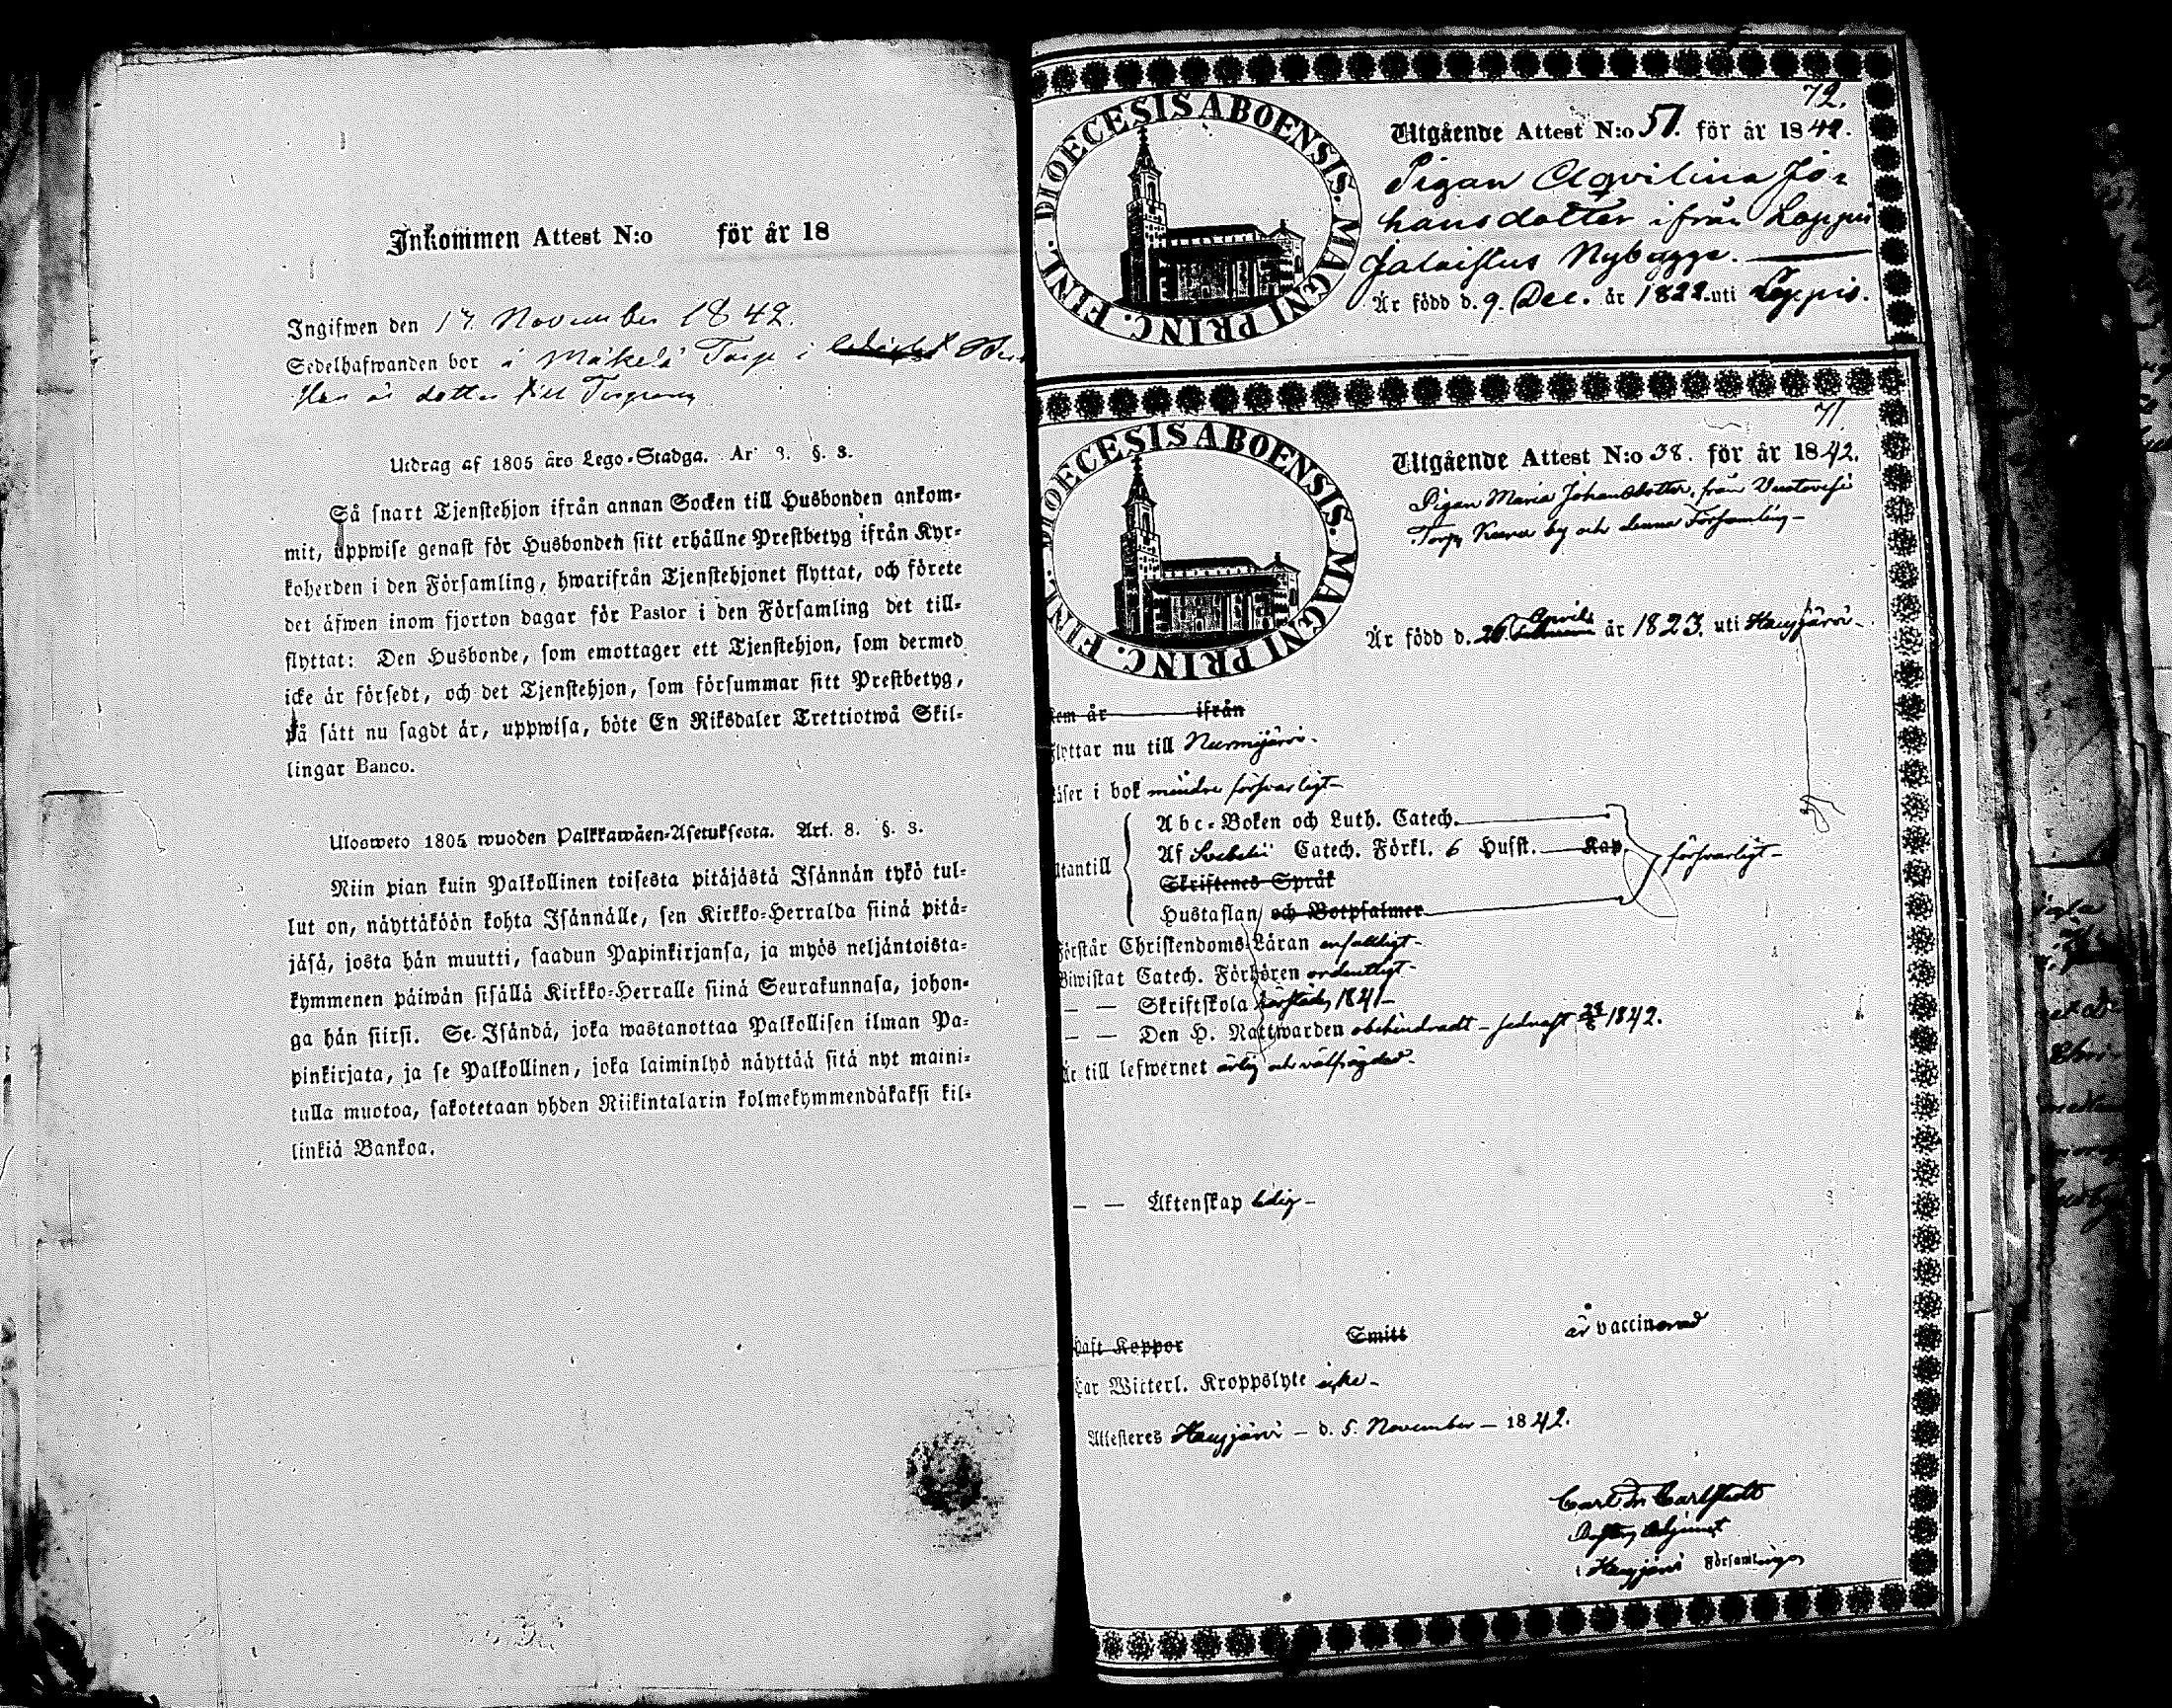 Inkommen Attest N:o för år 18
Ingifwen den 17 November 1842.
Sedelhafwanden bor å Mäkelä Torp i
Hon är dotter till Torparen
Utdrag af 1805 års Lego-Stadga. Ar 8. §. 3.
Så snart Tjenstehjon ifrån annan Socken till Husbonden ankom-
mit, uppwise genast för Husbonden sitt erhållne Prestbetyg ifrån Kyr-
koherden i den Församling, hwarifrån Tjenstehjonet flyttat, och förete
det äfwen inom fjorton dagar för Pastor i den Församling det till-
flyttat: Den Husbonde, som emottager ett Tjenstehjon, som dermed
icke är försedt, och det Tjenstehjon, som försummar sitt Prestbetyg,
på sätt nu sagdt är, uppwisa, böte En Riksdaler Trettiotwå Skil-
lingar Banco.
Uloswеto 1805 wuoden Palkkawäen-Asetuksesta. Art. 8. §. 3.
Niin pian kuin Palkollinen toisesta pitäjästä Isännän tykö tul-
lut on, näyttäköön kohta Isännälle, sen Kirkko-Herralda siinä pitä-
jäsä, josta hän muutti, saadun Papinkirjansa, ja myös neljäntoista-
kymmenen päiwän sisällä Kirkko-Herralle siinä Seurakunnasa, johon-
ga hän siirsi. Se Isändä, joka wastanottaa Palkollisen ilman Pa-
pinkirjata, ja se Palkollinen, joka laiminlyö näyttää sitä nyt maini-
tulla muotoa, sakotetaan yhden Riikintalarin kolmekymmendäkaksi kil-
linkiä Bankoa.
72.
DIOECESIS ABOENSIS. MAGNI PRINC. FINL.
Utgående Attest N:o 51. för år 1842.
Pigan Aqvilina Jo-
hansdotter ifrån Loppis
Jalaistus Nybygge.
Är född d. 9. Dec. år 1822. uti Loppis.
71.
DIOECESIS ABOENSIS. MAGNI PRINC. FINL.
Utgående Attest N:o 38. för år 1842.
Pigan Maria Johansdotter, från
Torp Kara by och denna Församling
Är född d. 26 April år 1823. uti Hausjärvi
kom år ifrån
flyttar nu till Nurmijärvi
läser i bok mindre försvarligt
Abc-Boken och Luth. Catech.
Utantill Af Svebelii Catech. Förkl. 6 Hufst. Kap. försvarligt
Skriftenes Språk
Hustaflan och Botpsalmer
Förstår Christendoms-Läran enfaldigt
Biwistat Catech. Förhören ordentligt
— — Skriftskola 1841
— — Den H. Nattwarden obehindradt – sednast 1842.
Är till lefwernet ärlig och välfrägdad
— — Äktenskap ledig
haft Koppor Smitt är vaccinerad
har Witterl. Kroppslyte icke
Attesteres Hausjärvi – d. 5. November – 1842.
Carl Carlstedt
Adjunct
i Hausjärvi Församlingar